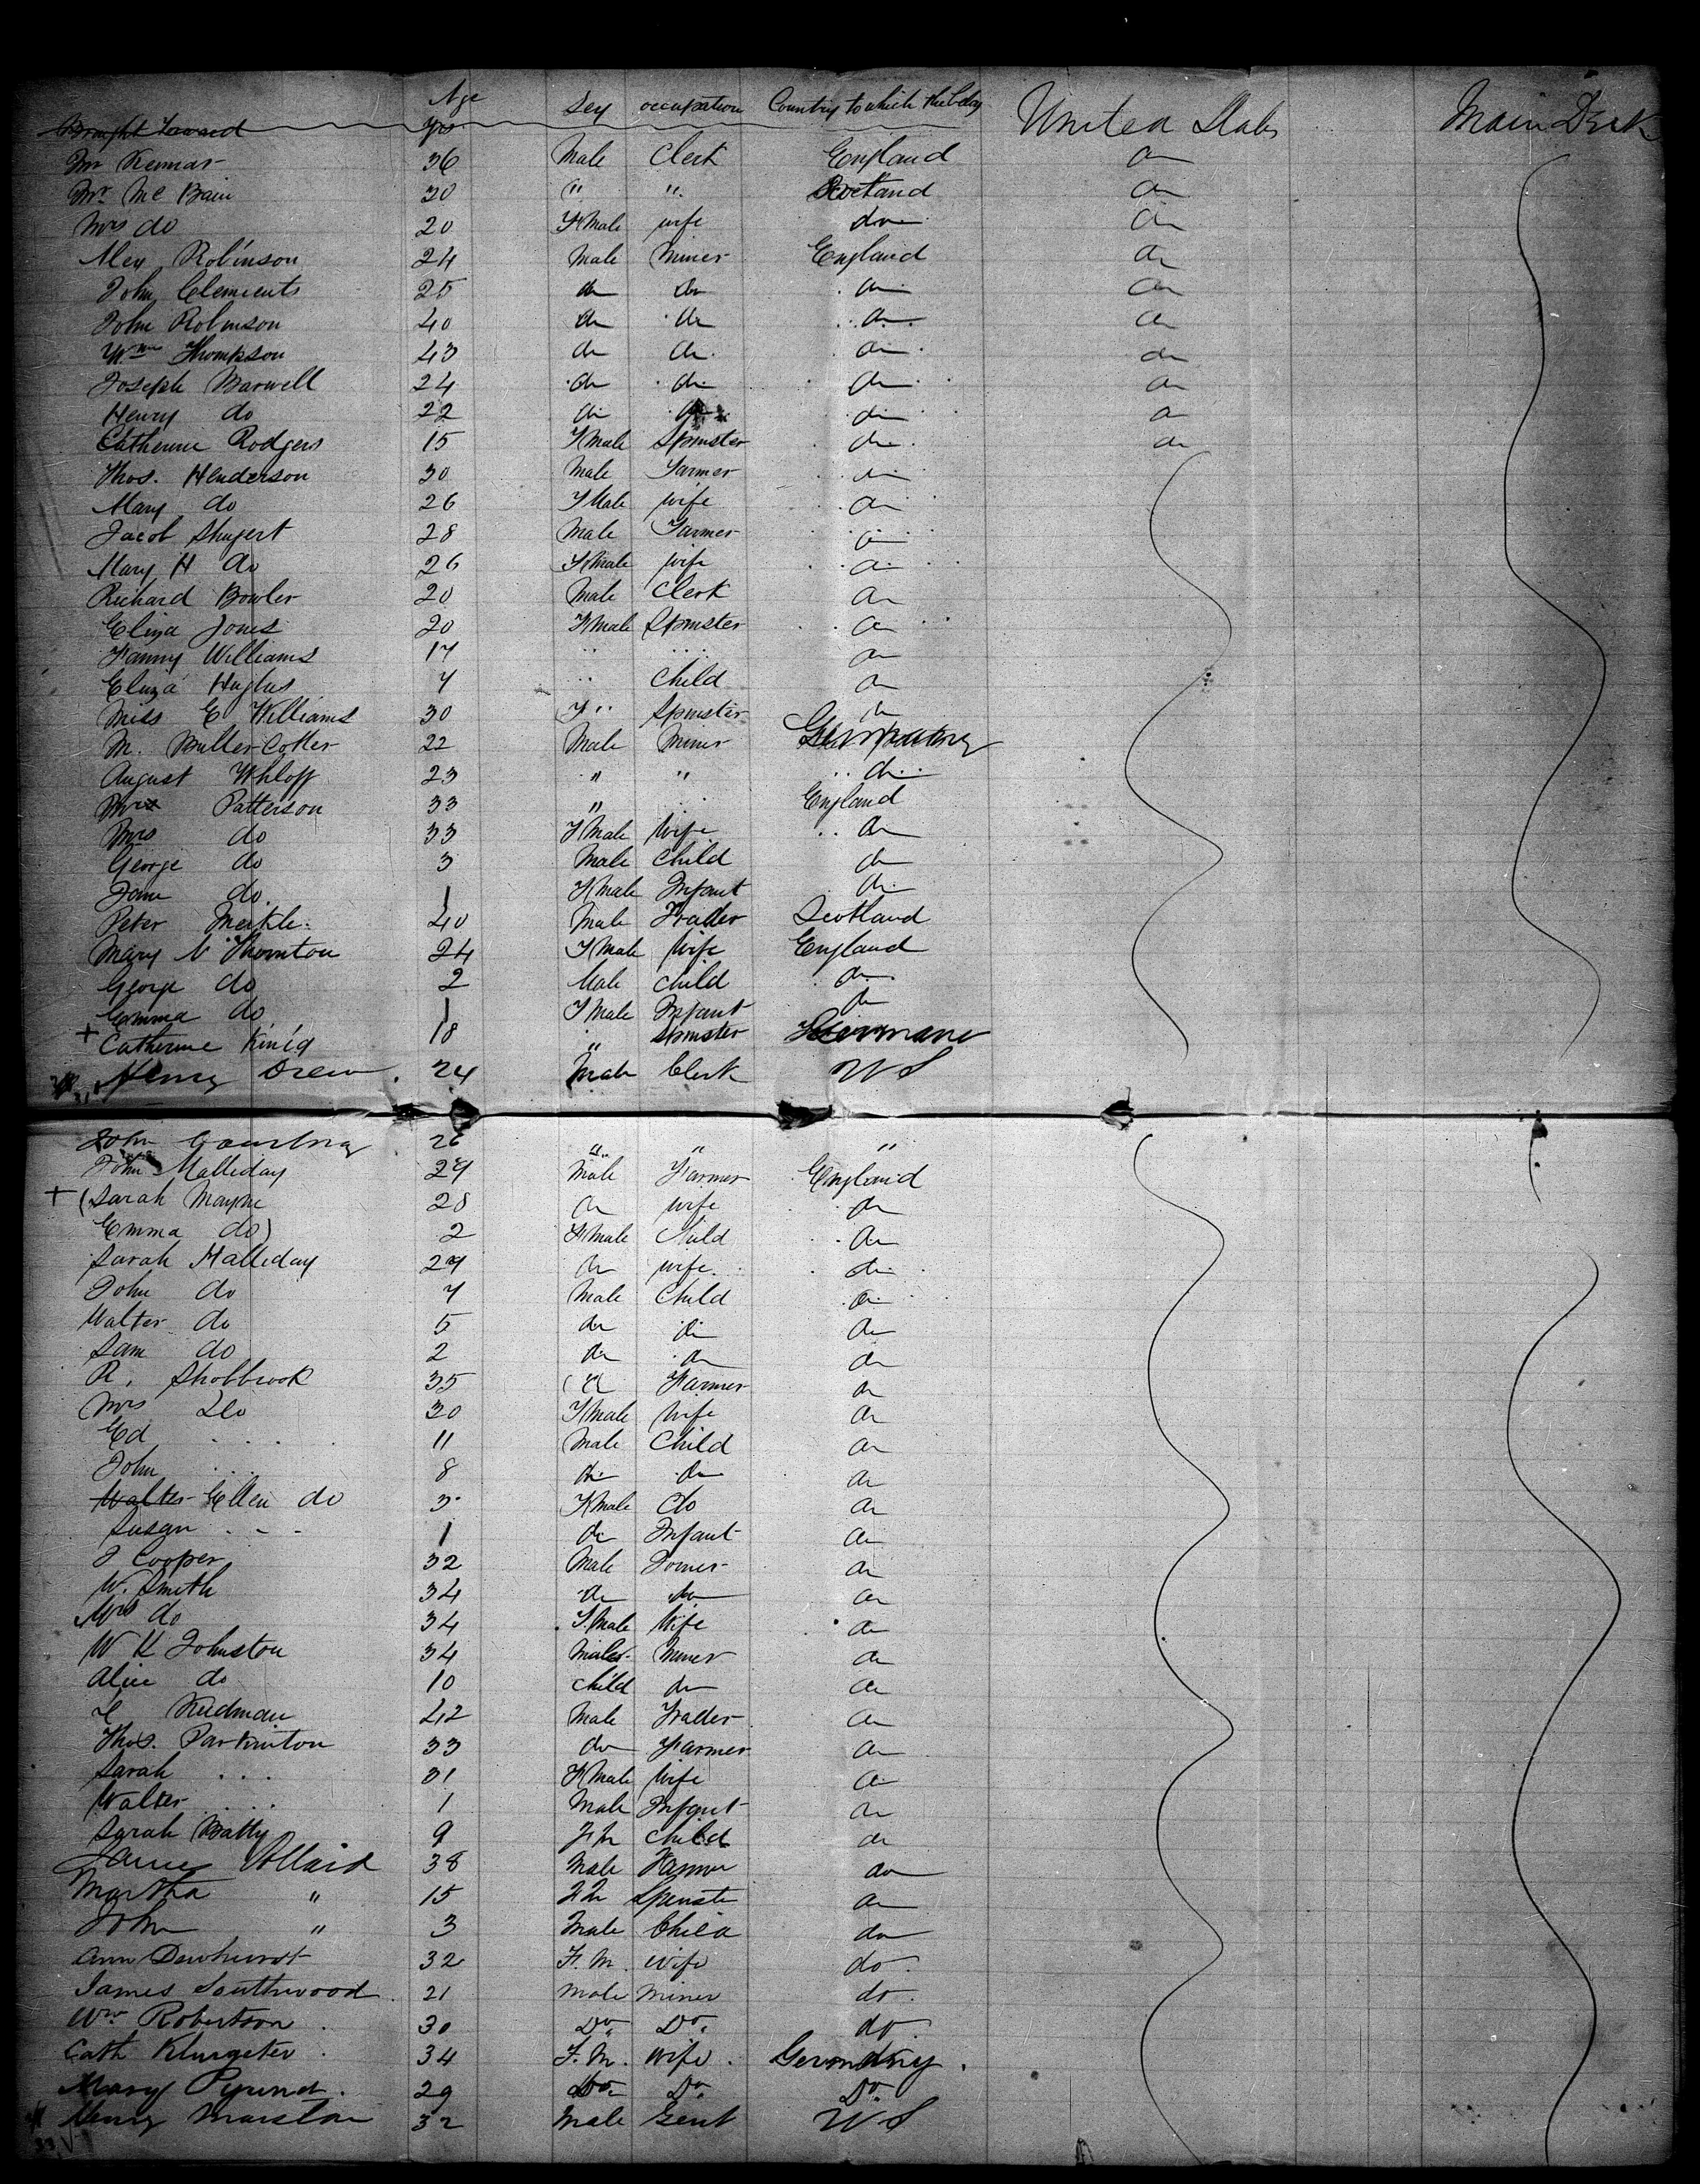 Age Sex occupation Country to which they belong United States Main Deck
Brought Forward Yrs.
Mr Kennar 36 Male Clerk England do
Mr. Mc Bain 30 " " Scotland do
Mrs do 20 F Male wife do do
Alex Robinson 24 Male Miner England do
John Clements 25 do do do do
John Robinson 40 do do do do
Wm Thompson 43 do do do do
Joseph Barwell 24 do do do do
Henry do 22 do do do do
Catherine Rodgers 15 F male Spinster do do
Thos. Henderson 30 Male Farmer do
Mary do 26 F Male wife do
Jacob Shugert 28 Male Farmer do
Mary H do 26 F male wife do
Richard Bowler 20 Male Clerk do
Eliza Jones 20 F male Spinster do
Fanny Williams 17 " " do
Eliza Hughes 7 " Child do
Miss E Williams 30 F " Spinster do
M. Buller Cotter 22 Male Miner Germany
August Whloff 23 " " do
Mr Patterson 33 " " England
Mrs do 33 F Male Wife do
George do 3 Male Child do
Jane do. 1 F male Infant do
Peter Meikle 40 Male Trader Scotland
Mary N Thornton 24 F Male Wife England
George do 2 Male child do
Emma do 1 F Male Infant do
+ Catherine König 18 " Spinster Germany
Henry Drew 24 Male Clerk US
John Courtney 26 " " "
John Halliday 29 Male Farmer England
+ (Sarah Mayne 28 do wife do
Emma do) 2 F male Child do
Sarah Halliday 29 do wife do
John do 7 Male Child do
Walter do 5 do do do
Sam do 2 do do do
R. Shobbrook 35 do Farmer do
Mrs Do 30 F Male Wife do
Ed . . . 11 Male Child do
John . . . 8 do do do
Walter Ellen do 3 F Male do do
Susan . - - 1 do Infant do
J Cooper 32 Male Joiner do
W. Smith 34 do do do
Mrs do 34 F. Male Wife do
W K Johnston 34 Male Miner do
Alice do 10 child do do
Rudman 42 Male Trader do
Thos. Partinton 33 do Farmer do
Sarah . . . 31 F Male Wife do
Walter . . . 1 Male Infant do
Sarah Batty 9 F m Child do
James Allard 38 Male Farmer do
Martha " 15 F m Spinster do
John " 3 Male Child do
Ann Dewhurst 32 F. M. Wife do.
James Southwood 21 Male Miner do.
Wm. Robertson 30 Do. Do. do
Cath Klurgeter 34 F. M. Wife. Germany.
Mary 29 Do. Do. Do.
Henry Marston 32 Male Gent US